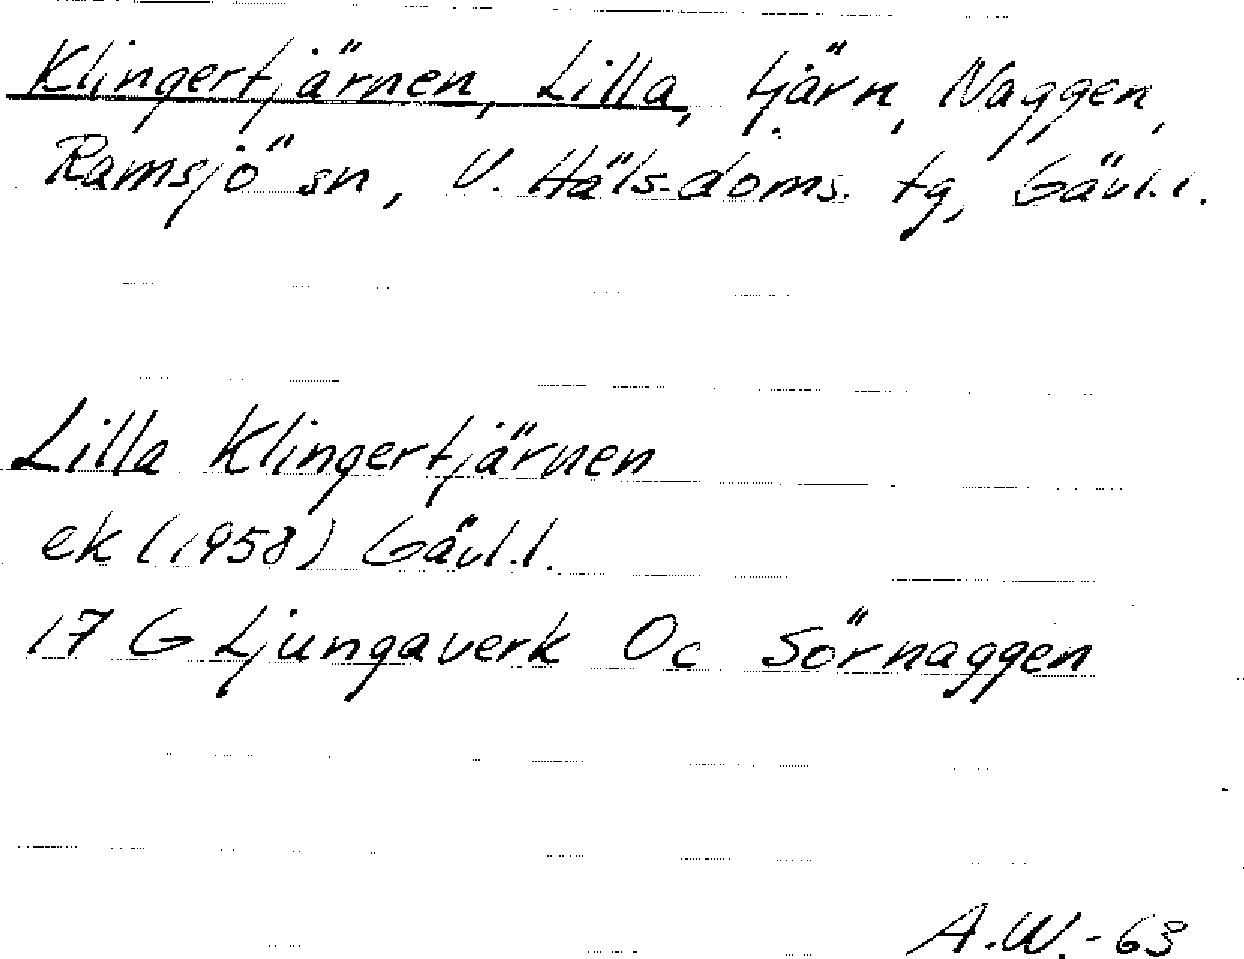 Klingertjärnen, Lilla, tjärn, Naggen,
Ramsjö sn, V. Häls. doms. tg, Gävl.l.
Lilla Klingertjärnen
ek (1958) Gävl.l.
17 G Ljungaverk Oc Sörnaggen
A.W.-63